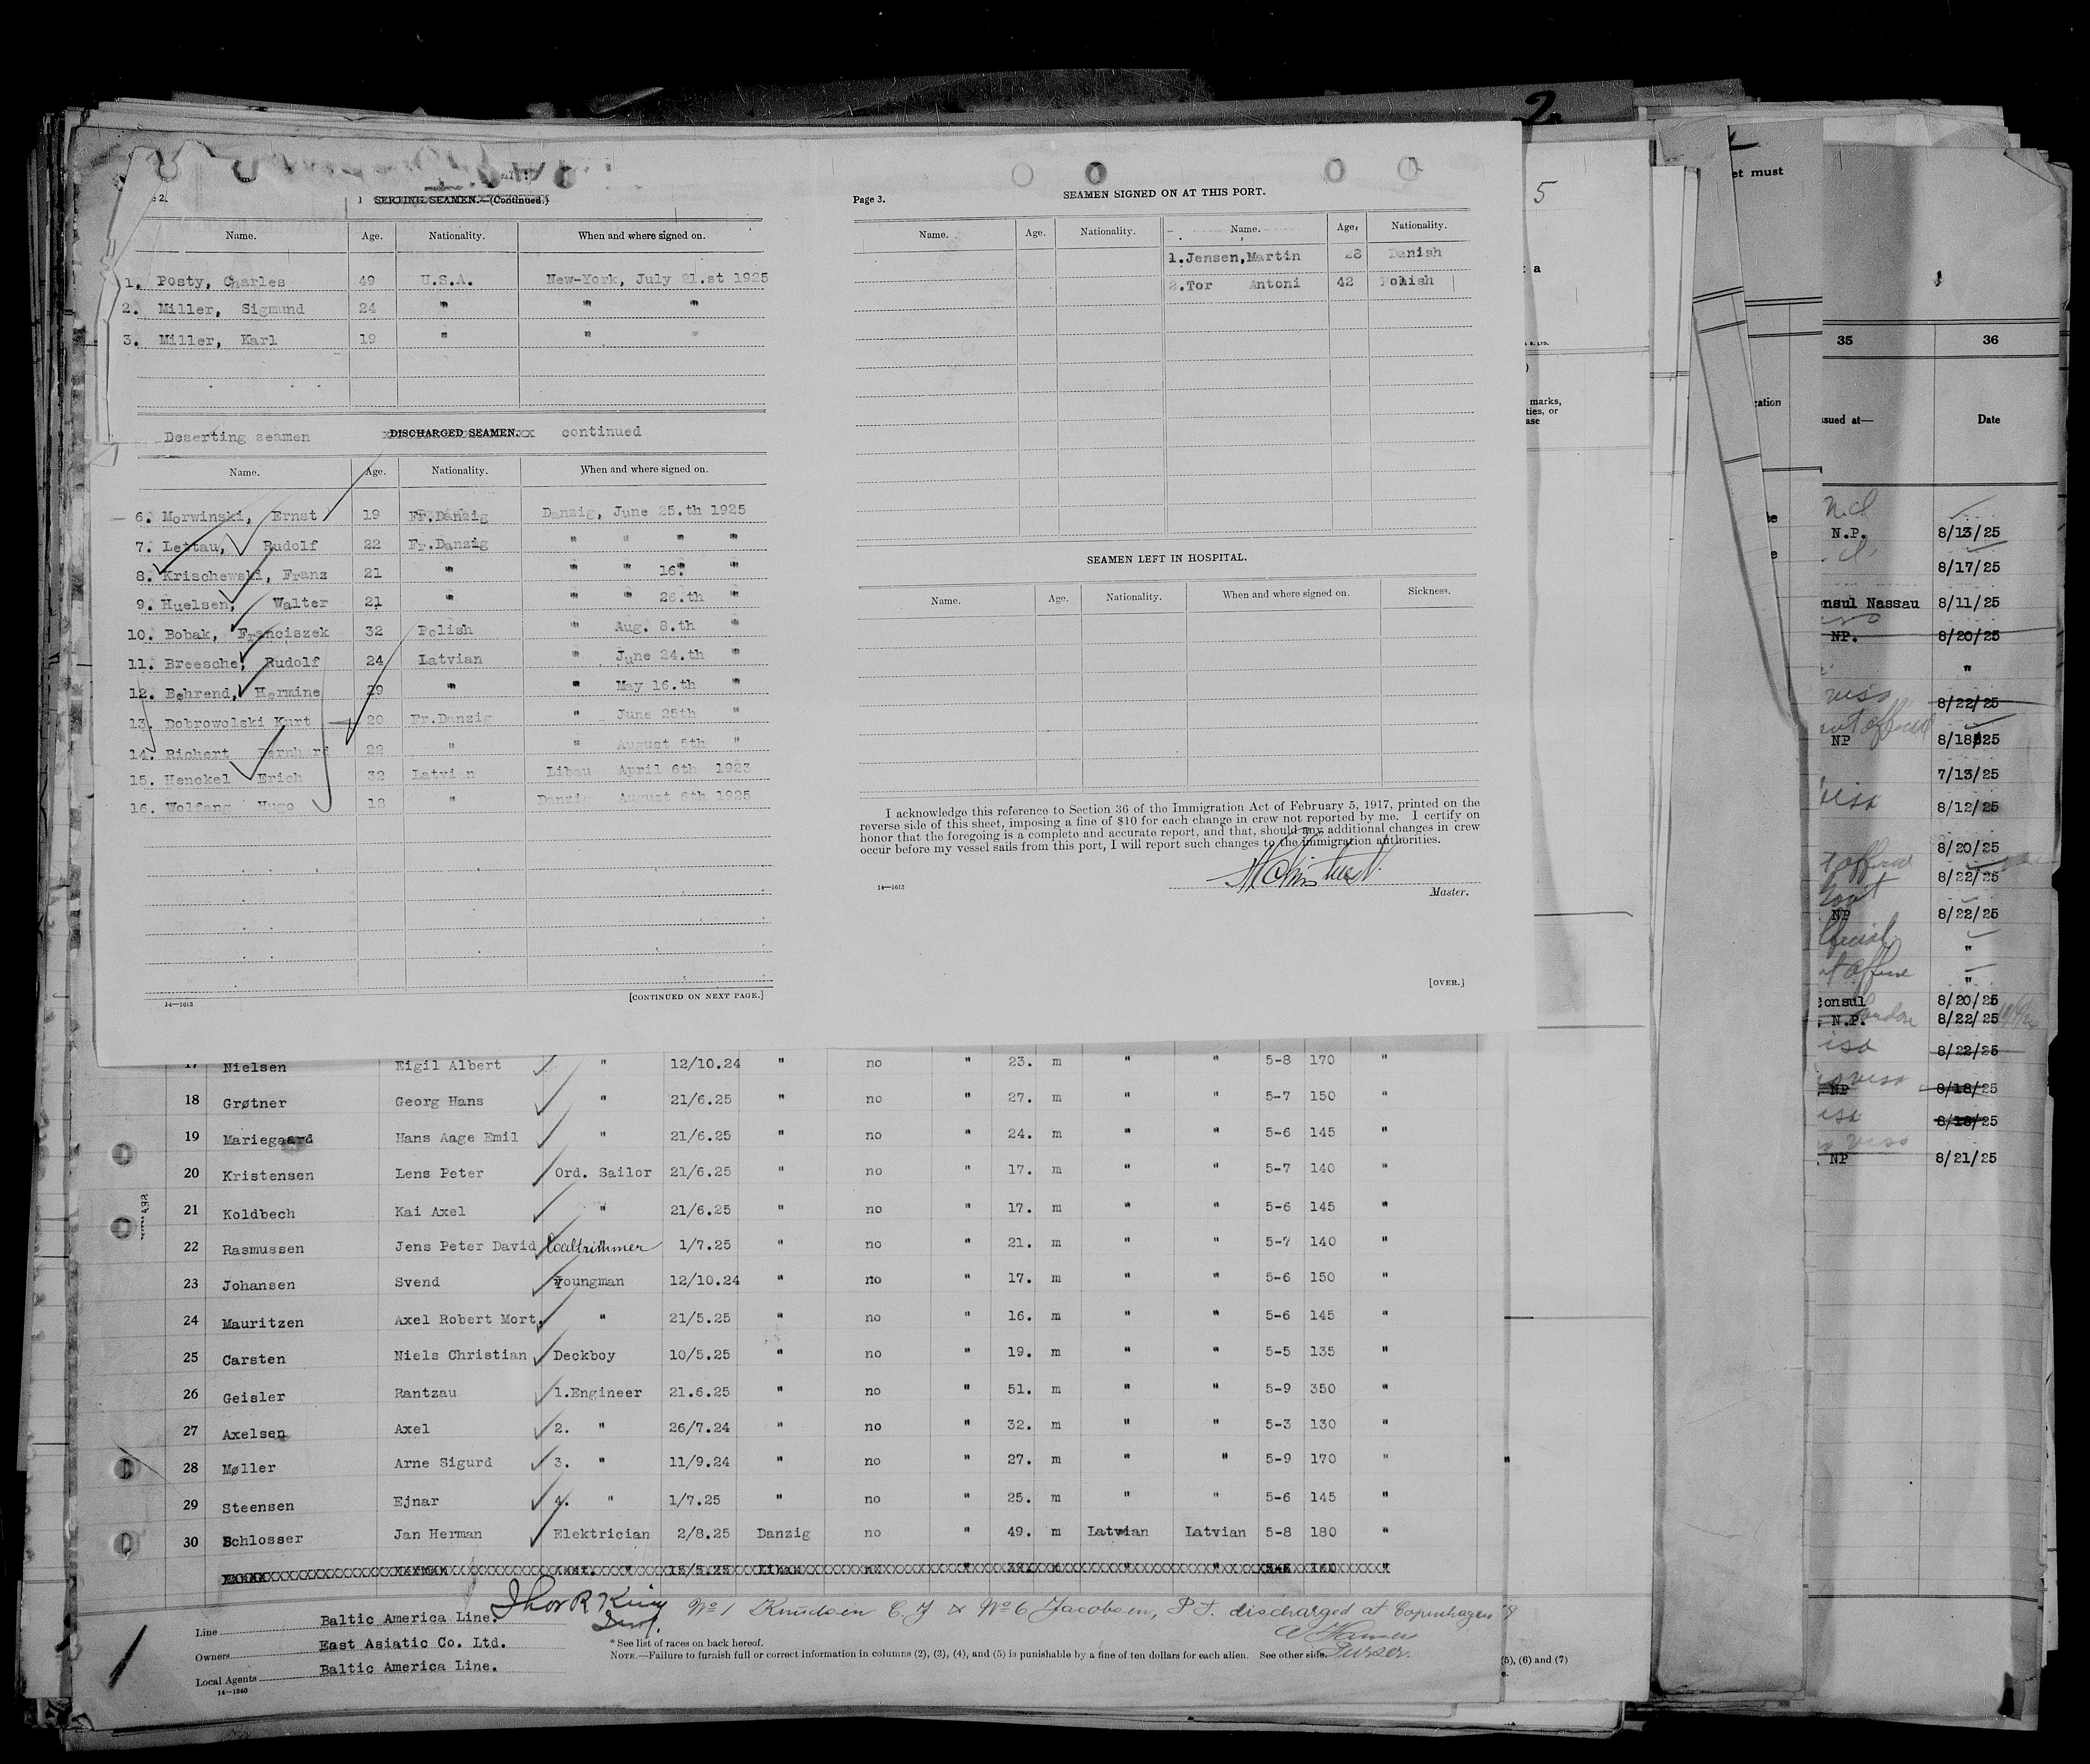 2.
SERTING SEAMEN.—(Continued.)
Name. Age. Nationality. When and where signed on.
1. Posty, Charles 49 U.S.A. New-York, July 21.st 1925
2. Miller, Sigmund 24 " " "
3. Miller, Karl 19 " " "
Deserting seamen DISCHARGED SEAMEN.xx continued
Name. Age. Nationality. When and where signed on.
6. Morwinski, Ernst 19 Fr.Danzig Danzig, June 25.th 1925
7. Lettau, Rudolf 22 Fr.Danzig " " " "
8. Krischewski, Franz 21 " " " 16. "
9. Huelsen, Walter 21 " " " 26.th "
10. Bobak, Franciszek 32 Polish " Aug. 8.th "
11. Breesche, Rudolf 24 Latvian " June 24.th "
12. Behrend, Hermine 29 " " May 16.th "
13. Dobrowolski Kurt 20 Fr.Danzig " June 25th "
14. Richert Bernhard 22 " " August 5th "
15. Henckel Erich 32 Latvian Libau April 6th 1923
16. Wolfang Hugo 18 " Danzig August 6th 1925
14—1613 [CONTINUED ON NEXT PAGE.]
Page 3. SEAMEN SIGNED ON AT THIS PORT.
Name. Age. Nationality. Name. Age. Nationality.
1.Jensen,Martin 28 Danish
2.Tor Antoni 42 Polish
SEAMEN LEFT IN HOSPITAL.
Name. Age. Nationality. When and where signed on. Sickness.
I acknowledge this reference to Section 36 of the Immigration Act of February 5, 1917, printed on the
reverse side of this sheet, imposing a fine of $10 for each change in crew not reported by me. I certify on
honor that the foregoing is a complete and accurate report, and that, should any additional changes in crew
occur before my vessel sails from this port, I will report such changes to the immigration authorities.
14—1613 Master.
[OVER.]
17 Nielsen Eigil Albert " 12/10.24 " no " 23. m " " 5-8 170 "
18 Grøtner Georg Hans " 21/6.25 " no " 27. m " " 5-7 150 "
19 Mariegaard Hans Aage Emil " 21/6.25 " no " 24. m " " 5-6 145 "
20 Kristensen Lens Peter Ord. Sailor 21/6.25 " no " 17. m " " 5-7 140 "
21 Koldbech Kai Axel " 21/6.25 " no " 17. m " " 5-6 145 "
22 Rasmussen Jens Peter David Coaltrimmer 1/7.25 " no " 21. m " " 5-7 140 "
23 Johansen Svend Youngman 12/10.24 " no " 17. m " " 5-6 150 "
24 Mauritzen Axel Robert Mort. " 21/5.25 " no " 16. m " " 5-6 145 "
25 Carsten Niels Christian Deckboy 10/5.25 " no " 19. m " " 5-5 135 "
26 Geisler Rantzau 1.Engineer 21.6.25 " no " 51. m " " 5-9 350 "
27 Axelsen Axel 2. " 26/7.24 " no " 32. m " " 5-3 130 "
28 Møller Arne Sigurd 3. " 11/9.24 " no " 27. m " " 5-9 170 "
29 Steensen Ejnar 4. " 1/7.25 " no " 25. m " " 5-6 145 "
30 Schlosser Jan Herman Elektrician 2/8.25 Danzig no " 49. m Latvian Latvian 5-8 180 "
Line Baltic America Line.
Owners East Asiatic Co. Ltd.
Local Agents Baltic America Line.
14—1240
Thor R King
No 1 Knudsen C.J & No 6 Jacobsen, P.J. discharged at Copenhagen
Purser.
* See list of races on back hereof.
NOTE.—Failure to furnish full or correct information in columns (2), (3), (4), and (5) is punishable by a fine of ten dollars for each alien. See other side.
5
a
marks,
ties, or
ase
(5), (6) and (7)
et must
cation
35 36
ssued at— Date
N.P. 8/13/25
8/17/25
onsul Nassau 8/11/25
NP. 8/20/25
"
8/22/25
NP 8/18/25
7/13/25
visa 8/12/25
8/20/25
8/22/25
NP 8/22/25
"
"
Consul 8/20/25
N.P. 8/22/25
8/22/25
NP 8/18/25
8/18/25
NP 8/21/25